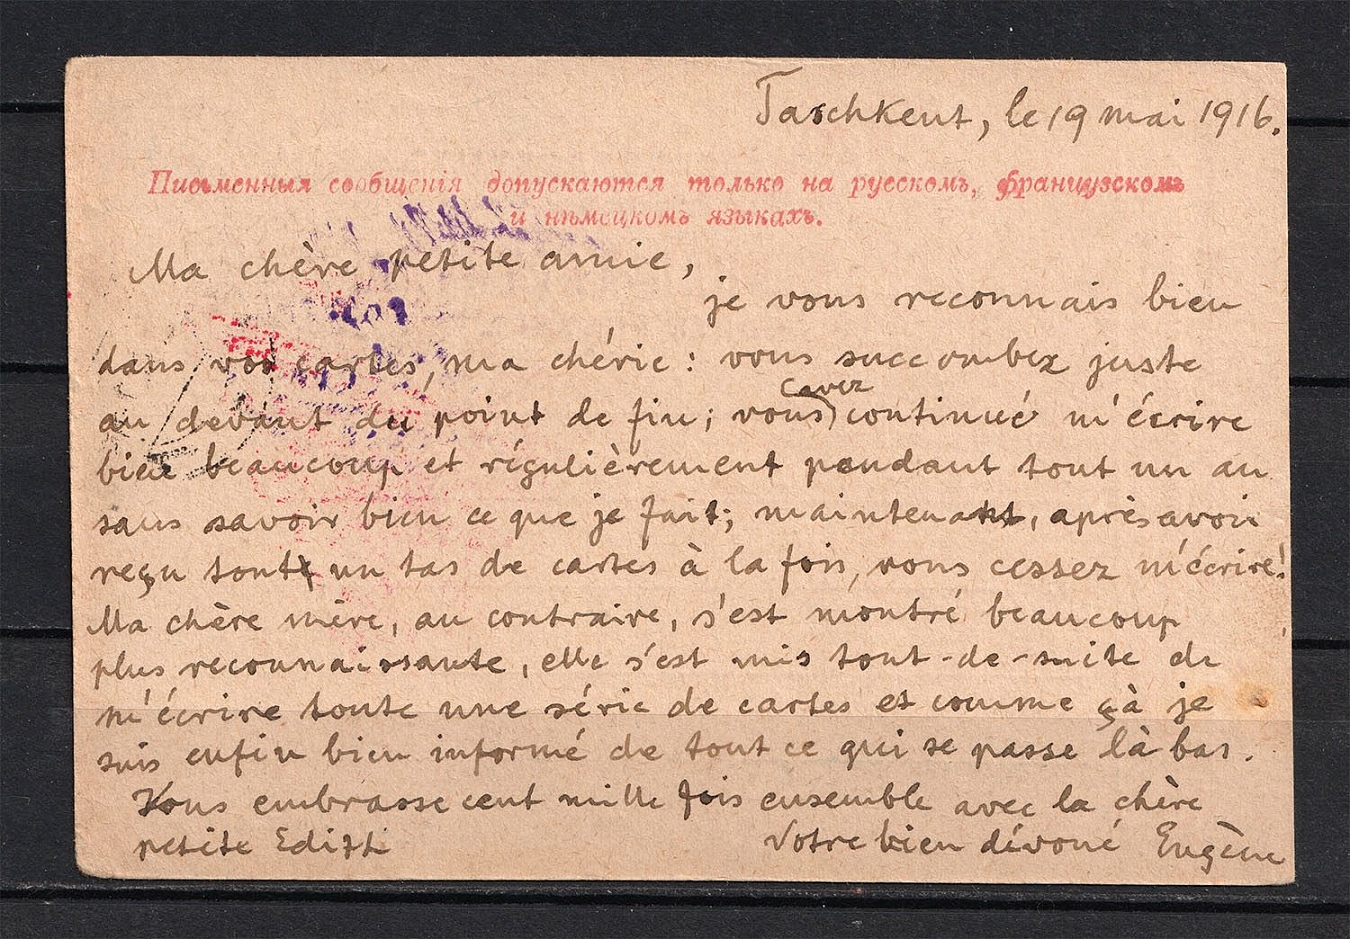 Taschkent, le 19 mai 1916.
Письменныя сообщенія допускаются только на русскомъ, французскомъ
и нѣмецкомъ языкахъ.
Ma chère petite amie,
je vous reconnais bien
dans vos cartes, ma chérie : vous succombez juste
au devant du point de fin; vous continué m'écrire
bien beaucoup et régulièrement pendant tout un an
sans savoir bien ce que je fait; maintenant, après avoir
reçu tout un tas de cartes à la fois, vous cessez m'écrire!
Ma chère mère, au contraire, s'est montré beaucoup
plus reconnaissante, elle s'est mis tout-de-suite de
m'écrire toute une série de cartes et comme çà je
suis enfin bien informé de tout ce qui se passe là bas.
Vous embrasse cent mille fois ensemble avec la chère
petite Edith
Votre bien dévoué Eugène